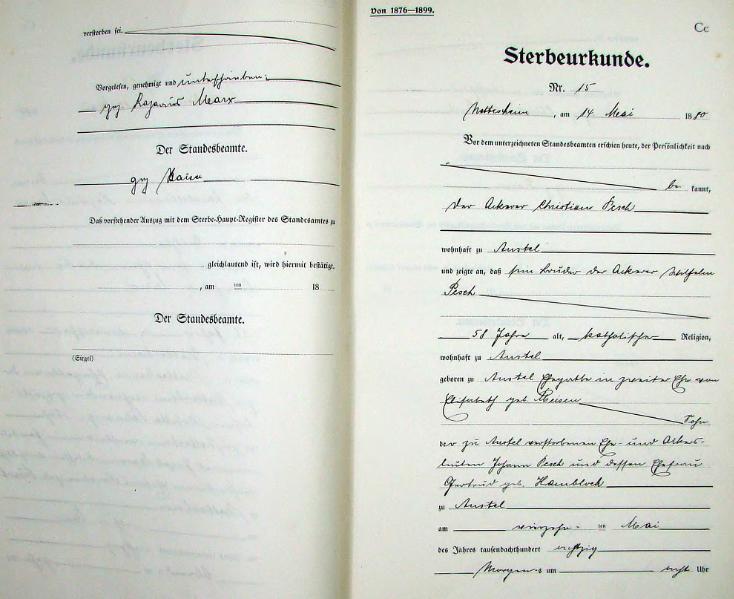 verstorben sei.
Vorgelesen, genehmigt und unterschrieben.
gez Lazarius Marx
Der Standesbeamte.
gez
Daß vorstehender Auszug mit dem Sterbe-Haupt-Register des Standesamtes zu
gleichlautend ist, wird hiermit bestätigt.
, am ten 18
Der Standesbeamte.
(Siegel)
Von 1876—1899.
Cc
Sterbeurkunde.
Nr. 15
Nettesheim, am 14 Mai 1880
Vor dem unterzeichneten Standesbeamten erschien heute, der Persönlichkeit nach
be kannt,
der Ackerer Christian Pesch
wohnhaft zu Anstel
und zeigte an, daß sein Bruder der Ackerer Wilhelm
Pesch
58 Jahre alt, katholischer Religion,
wohnhaft zu Anstel
geboren zu Anstel Ehegatte in zweiter Ehe von
Elisabeth geb
Sohn
der zu Anstel verstorbenen Ehe- und Ackers-
leuten Johann Pesch und dessen Ehefrau
Gertrud geb. Hambloch
zu Anstel
am vierzehn ten Mai
des Jahres tausendachthundert achtzig
Morgens um acht Uhr